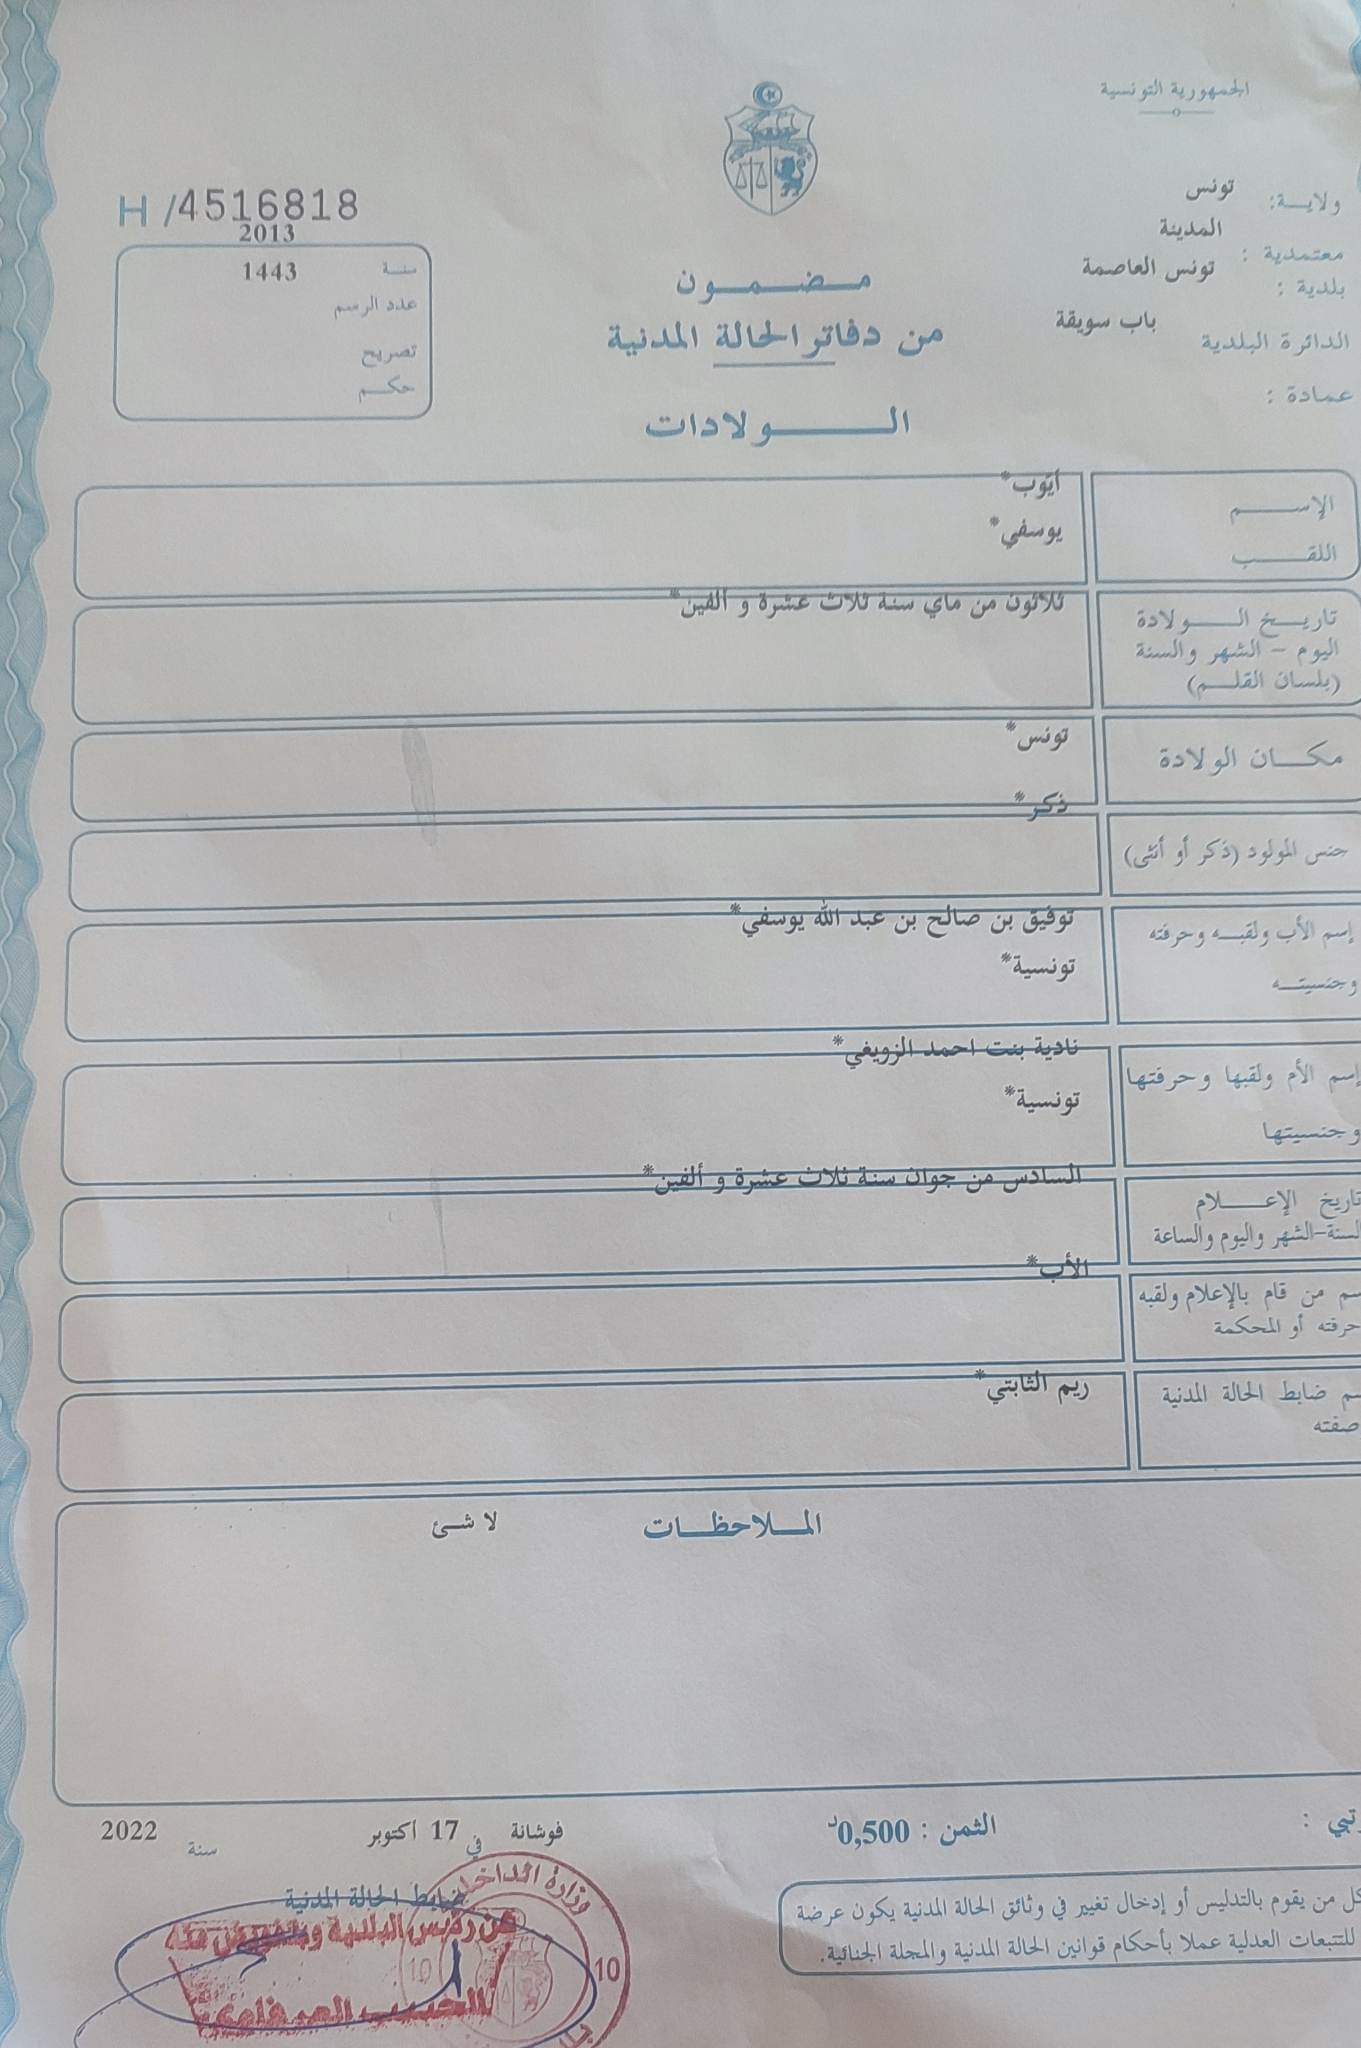 الجمهورية التونسية
ولاية: تونس
معتمدية : المدينة
بلدية : تونس العاصمة
الدائرة البلدية باب سويقة
عمادة :
H /4516818
سنة 2013
عدد الرسم 1443
تصريح
حكم
مضمون
من دفاتر الحالة المدنية
الولادات
الإسم أيوب*
اللقب يوسفي*
تاريخ الولادة ثلاثون من ماي سنة ثلاث عشرة و ألفين*
اليوم - الشهر والسنة
(بلسان القلم)
مكان الولادة تونس*
جنس المولود (ذكر أو أنثى) ذكر*
إسم الأب ولقبه وحرفته توفيق بن صالح بن عبد الله يوسفي*
وجنسيته تونسية*
إسم الأم ولقبها وحرفتها نادية بنت احمد الزويغي*
وجنسيتها تونسية*
تاريخ الإعلام السادس من جوان سنة ثلاث عشرة و ألفين*
السنة-الشهر واليوم والساعة
سم من قام بالإعلام ولقبه الأب*
حرفته أو المحكمة
سم ضابط الحالة المدنية ريم الثابتي*
صفته
الملاحظات
لا شئ
الثمن : 0,500د
فوشانة في 17 اكتوبر سنة 2022
ضابط الحالة المدنية
كل من يقوم بالتدليس أو إدخال تغيير في وثائق الحالة المدنية يكون عرضة
للتتبعات العدلية عملا بأحكام قوانين الحالة المدنية والمجلة الجنائية.
وزارة الداخلية
عن رئيس البلدية وبتفويض منه
الحبيب
10
10